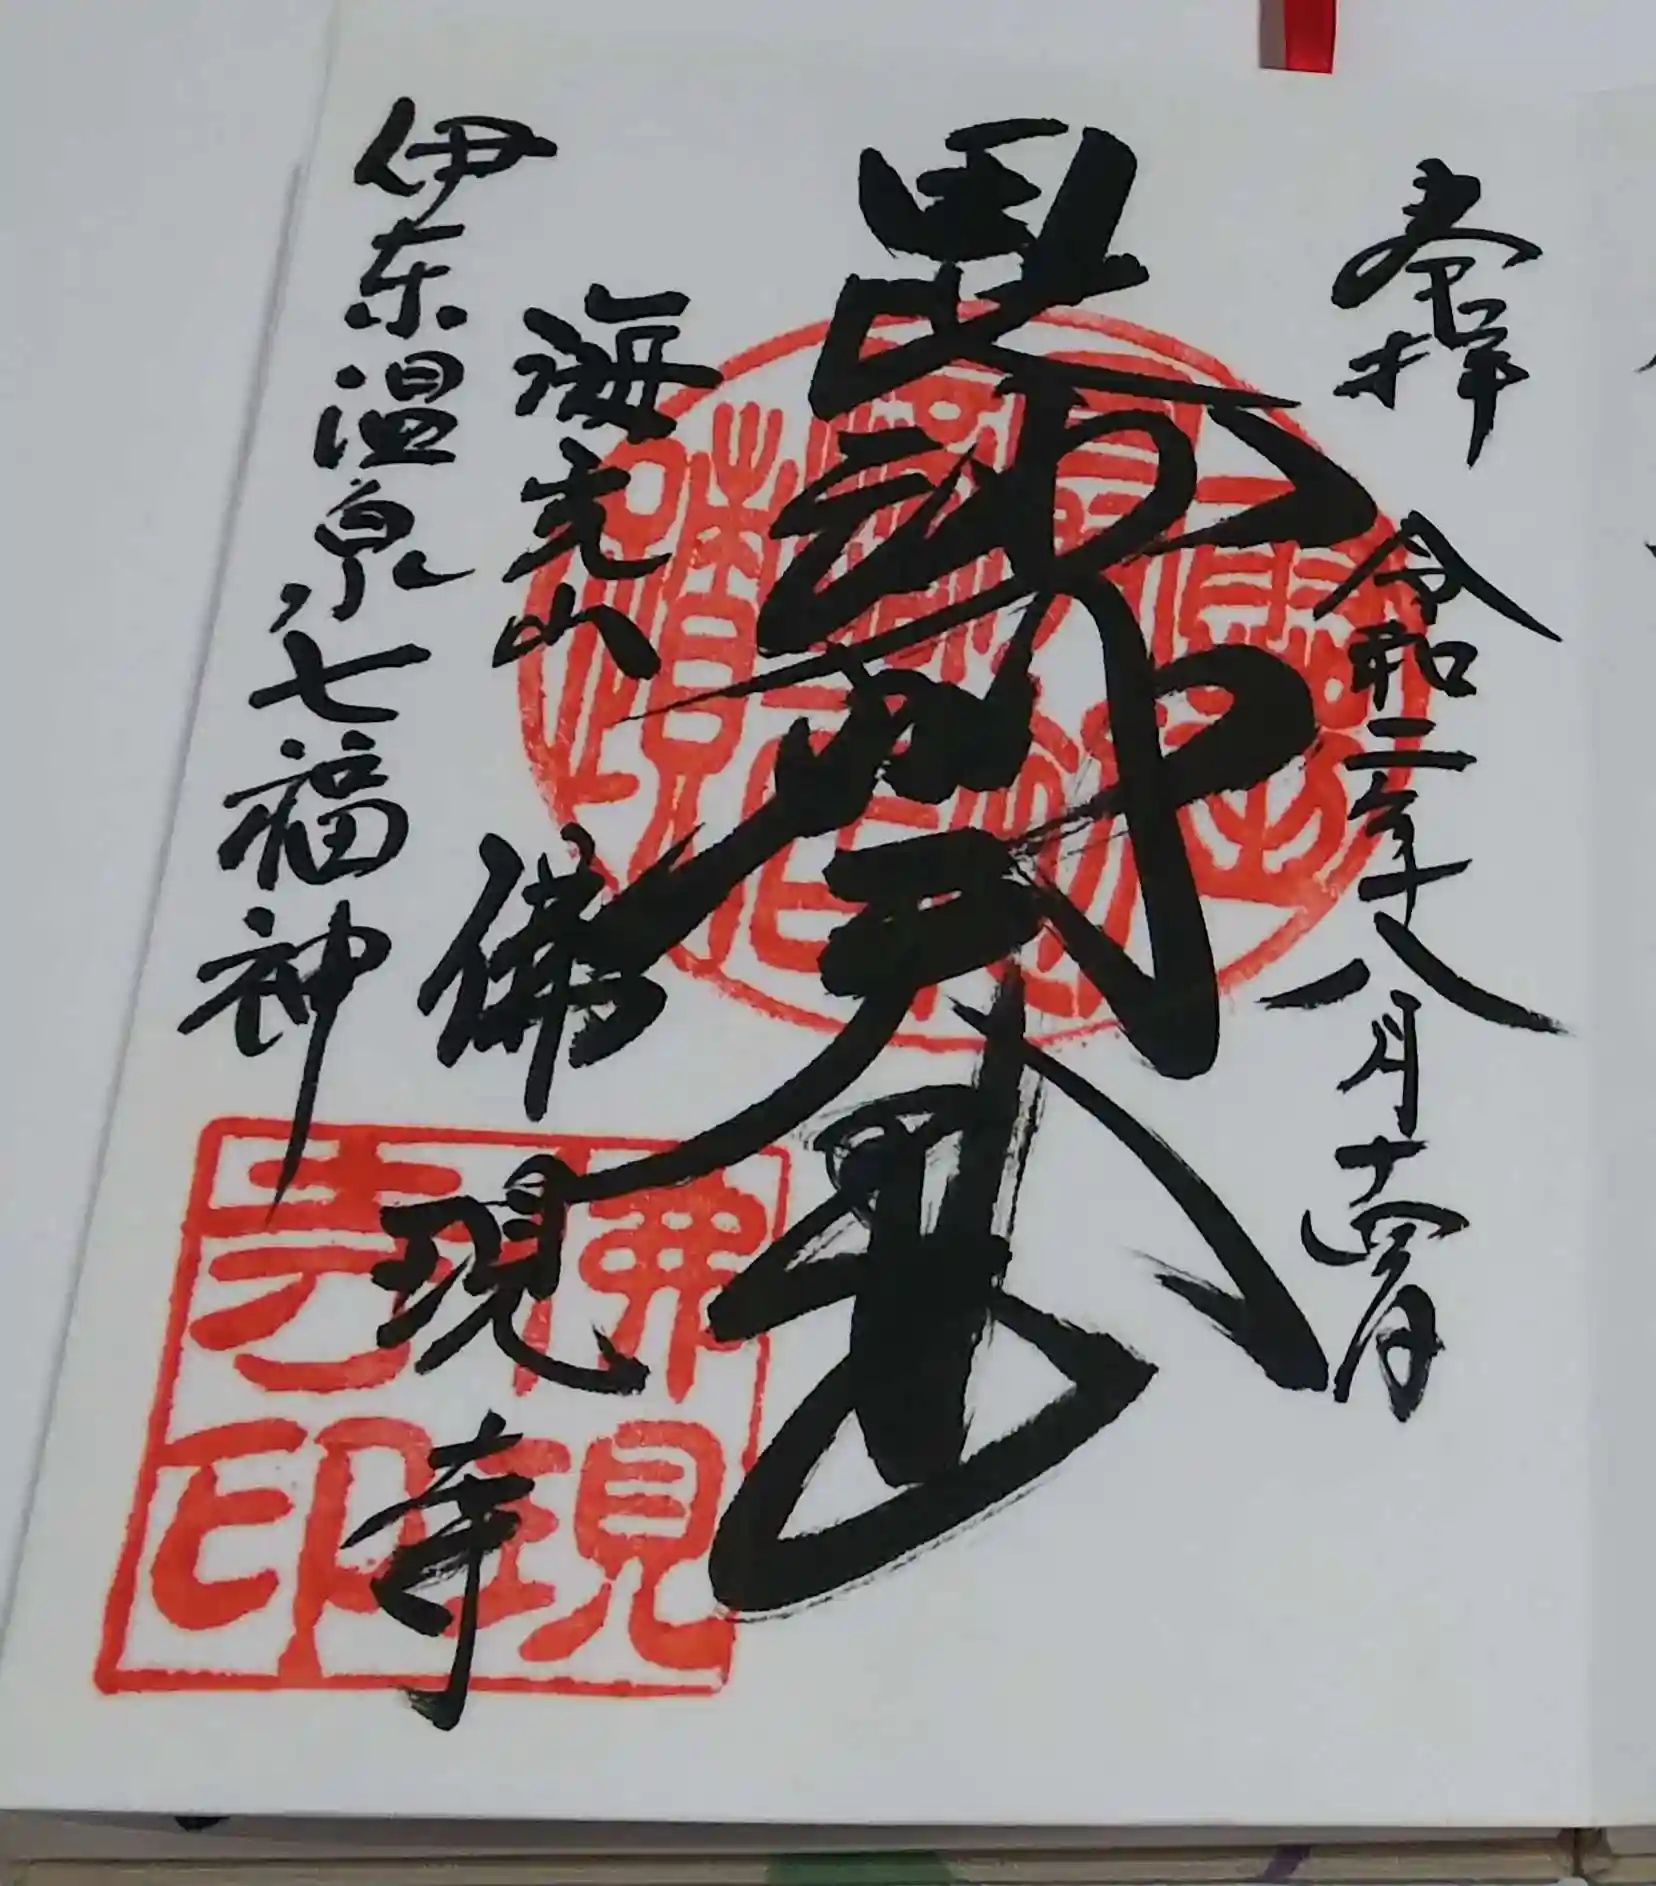 奉拝 令和二年八月十四日
毘沙門天
海光山
佛現寺
伊東温泉七福神
佛現寺印